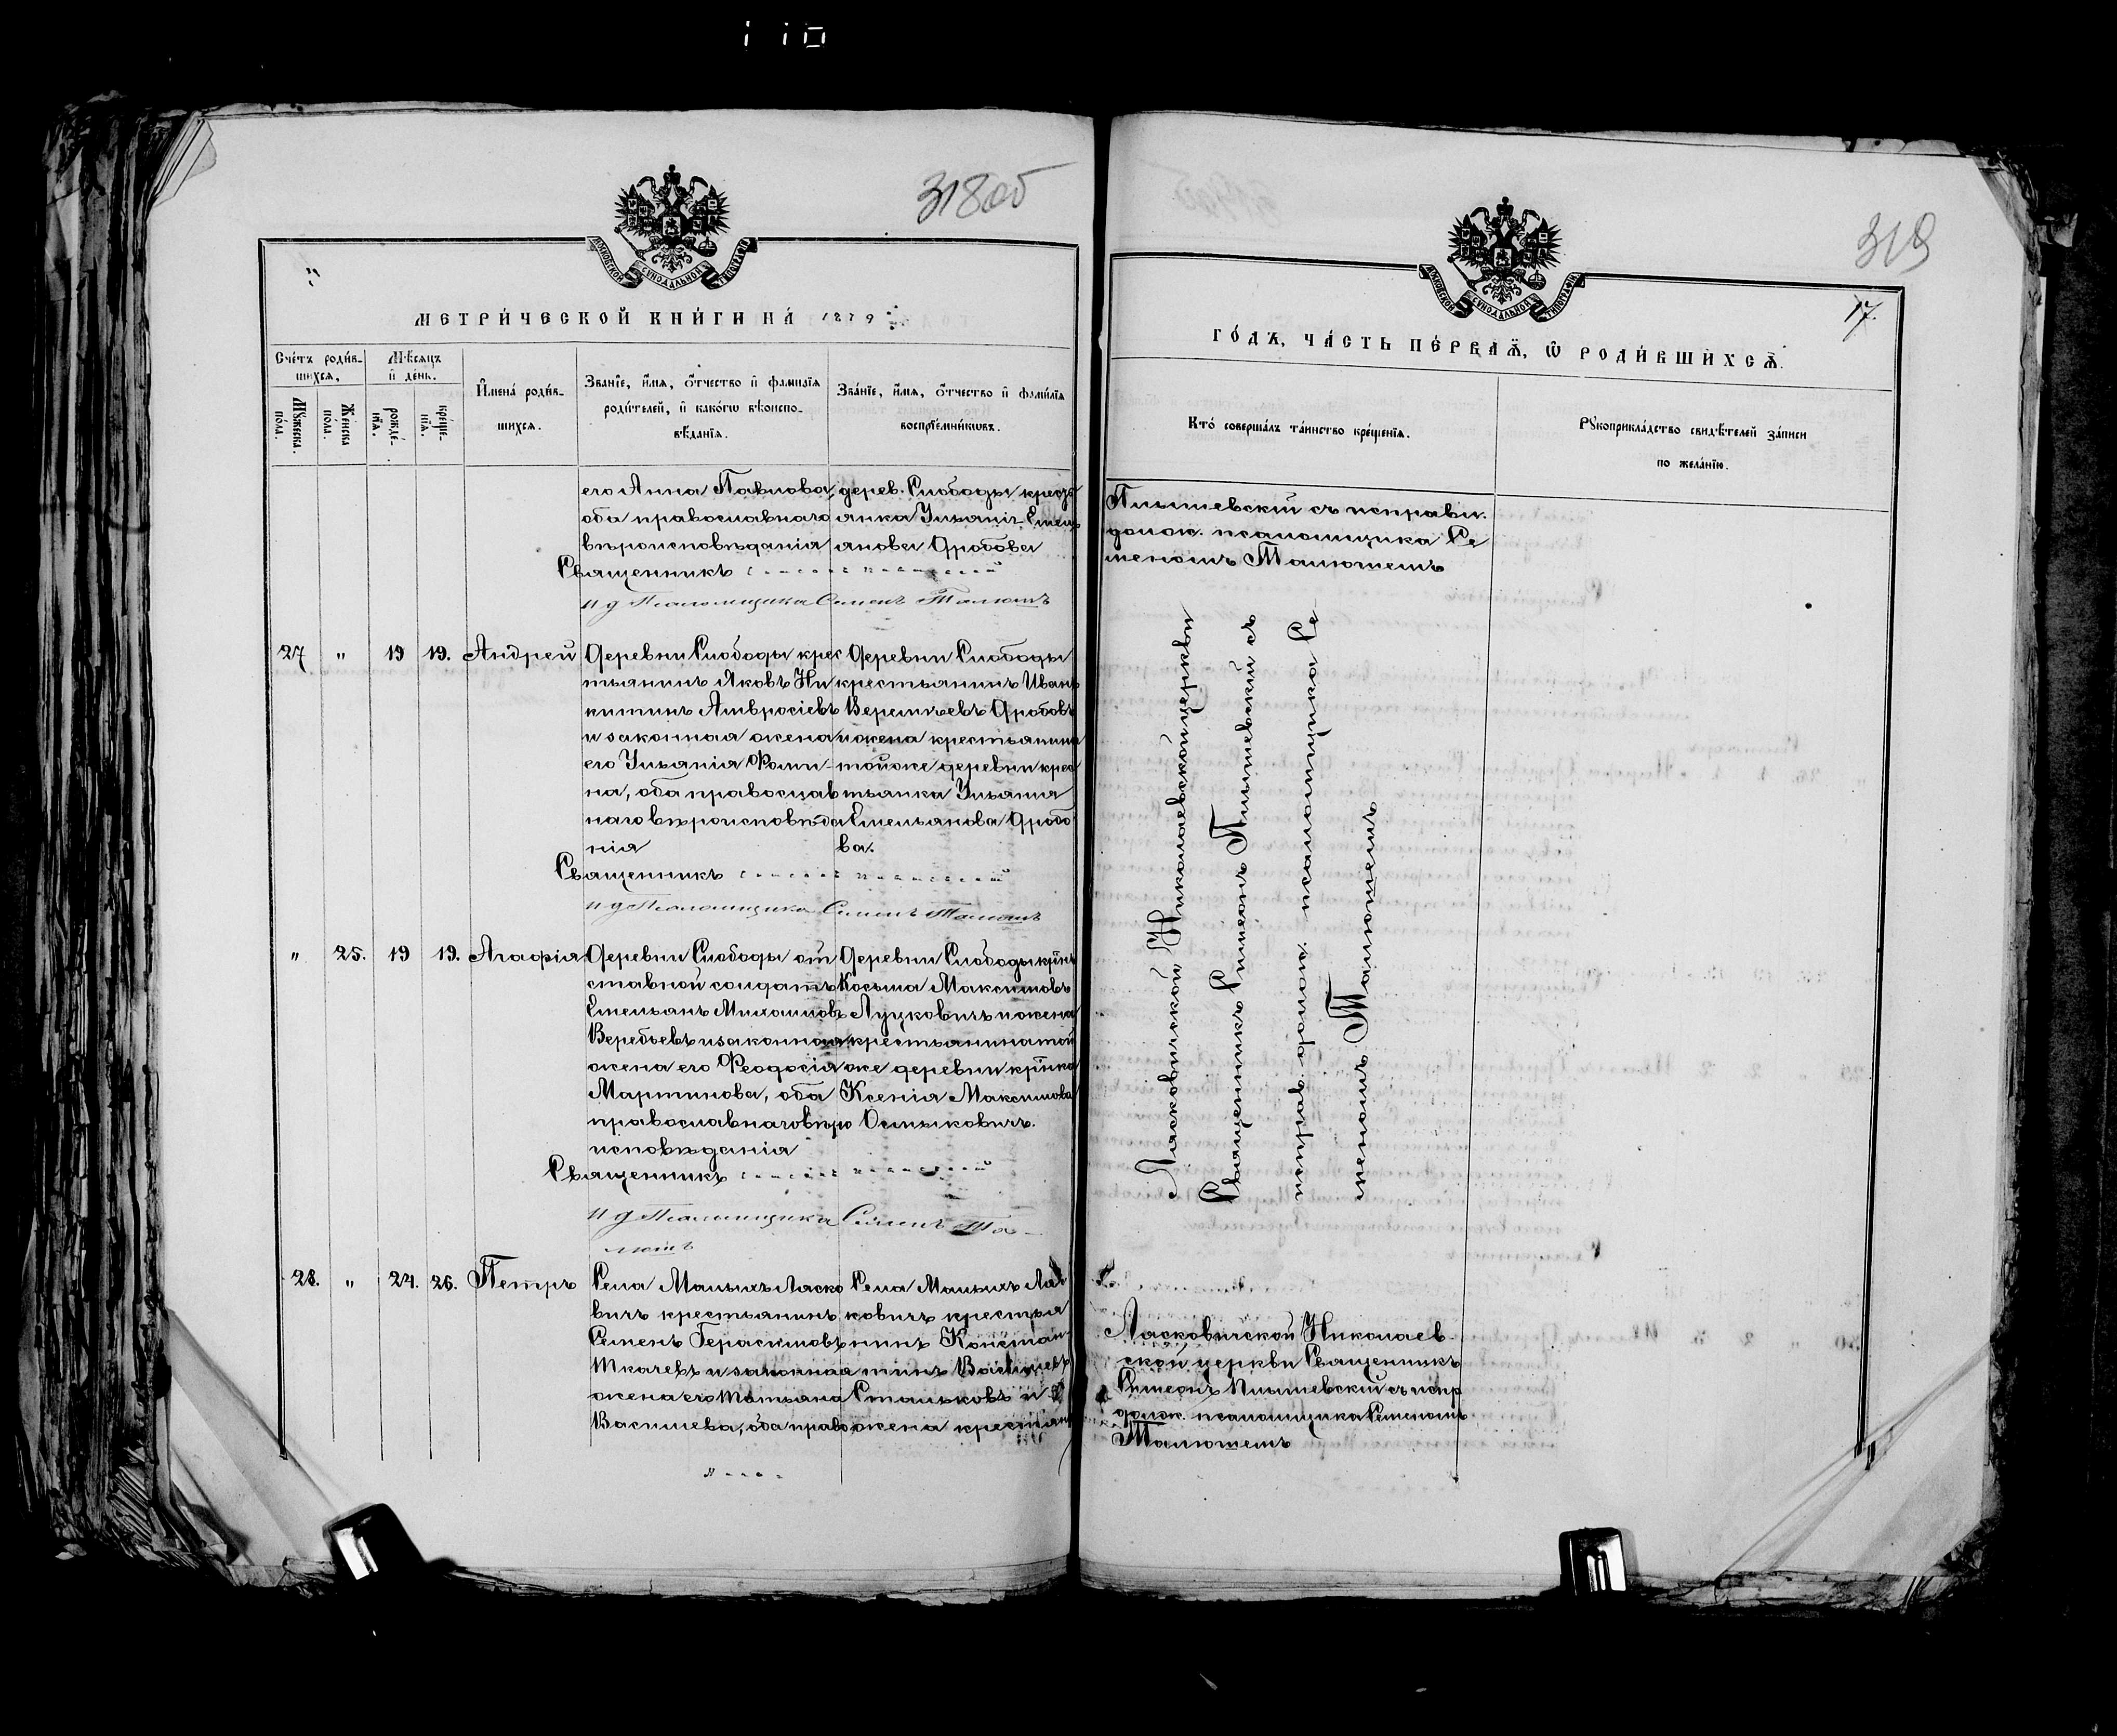 110
318об
МЕТРИ́ЧЕСКОЙ КНИ́ГИ НА́ 1879
Сче́тъ роди́вшихся,
Мѣ́сяцъ и҆ де́нь.
Мꙋ́жеска по́ла.
Же́нска по́ла.
рожде́нїя.
креще́нїя.
И҆мена̀ роди́вшихся.
Зва́нїе, и҆́мя, ѻ҆́тчество и҆ фами́лїя роди́телей, и҆ како́гѡ вѣ́роисповѣ́данїя.
Зва́нїе, и҆́мя, ѻ҆́тчество и҆ фами́лїя воспрїе́мникѡвъ.
его Анна Павлова,
оба православнаго
вѣроисповѣданія
дерев. Слободы кресть
янка Ульянія Емель
янова Дробова
Священникъ
И д Псаломщика Симеонъ Талюшъ
27 " 19 19. Андрей
Деревни Слободы крес
тьянинъ Яковъ Ни
китинъ Амвросіевъ
и законная жена
его Ульянія Фоми-
на, оба православ
наго вѣроисповѣда
нія
Деревни Слободы
крестьянинъ Иванъ
Веремѣевъ Дробовъ
и жена крестьянина
той же деревни крес
тьянка Ульянія
Емельянова Дробо
ва.
Священникъ
И д Псаломщика Симеонъ Талюшъ
" 25. 19 19. Агафія
Деревни Слободы от
ставной солдатъ
Емельянъ Михаиловъ
Веребьевъ и законная
жена его Феодосія
Мартинова, оба
православнаго вѣро
исповѣданія
Деревни Слободы крнъ
Косьма Максимовъ
Луцковичъ и жена
крестьянина той
же деревни крїнка
Ксенія Максимова
Осмыковичъ.
Священникъ
И д Псаломщика Симеонъ Та-
люшъ
28. " 24. 26. Петръ
Села Малыхъ Ляско
вичъ крестьянинъ
Семенъ Герасимовъ
Ткачевъ и законная
жена его Татьяна
Василева, оба право
Села Малыхъ Ляс
ковичъ крестья
нинъ Констан
тинъ Василиевъ
Стальковъ и
жена крестьян
319
17.
ГО́ДЪ, ЧА́СТЬ ПЕ́РВАЯ, Ѡ҆ РОДИ́ВШИХСЯ.
Кто̀ соверша́лъ та́инство креще́нїя.
Рꙋкоприкла́дство свидѣ́телей за́писи по жела́нїю.
Пилишевскій съ исправл.
долж. псаломщика Се
меномъ Талюшемъ
Лясковичской Николаевской церкви
Священникъ Симеонъ Пилишевскій съ
исправ. долж. псаломщика Се
меномъ Талюшемъ
Лясковичской Николаев
ской церкви Священникъ
Симеонъ Пилишевскій съ испр
долж. псаломщика Семеномъ
Талюшемъ